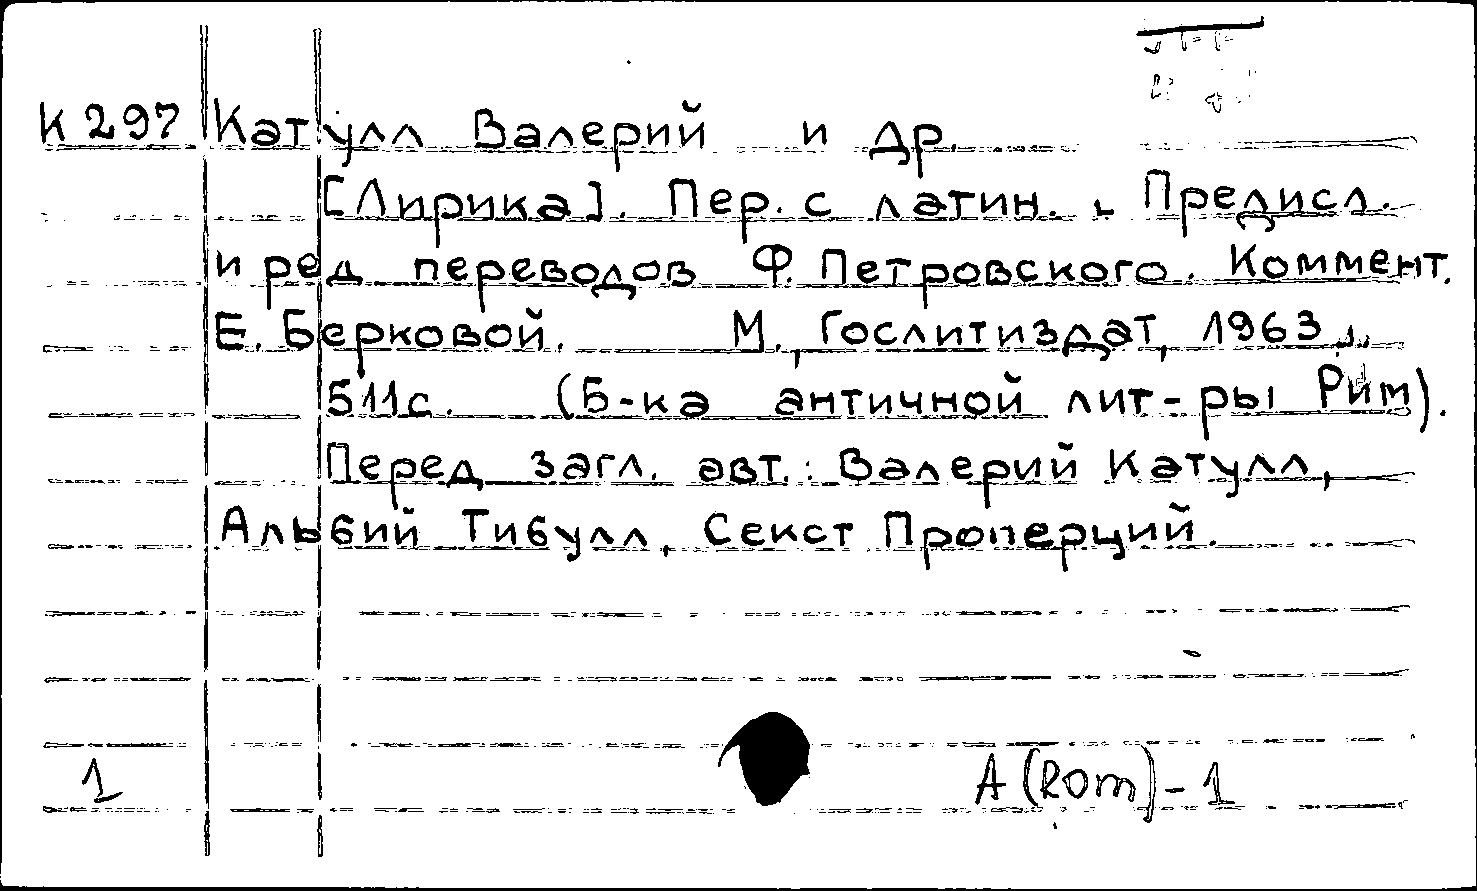 К 297 Катулл Валерий и др.
[Лирика]. Пер. с латин. Предисл.
и ред переводов Ф. Петровского. Коммент.
Е. Берковой. М., Гослитиздат, 1963.
511с. (Б-ка античной лит-ры Рим).
Перед загл. авт.: Валерий Катулл,
Альбий Тибулл, Секст Проперций.
1 А (Rom) - 1